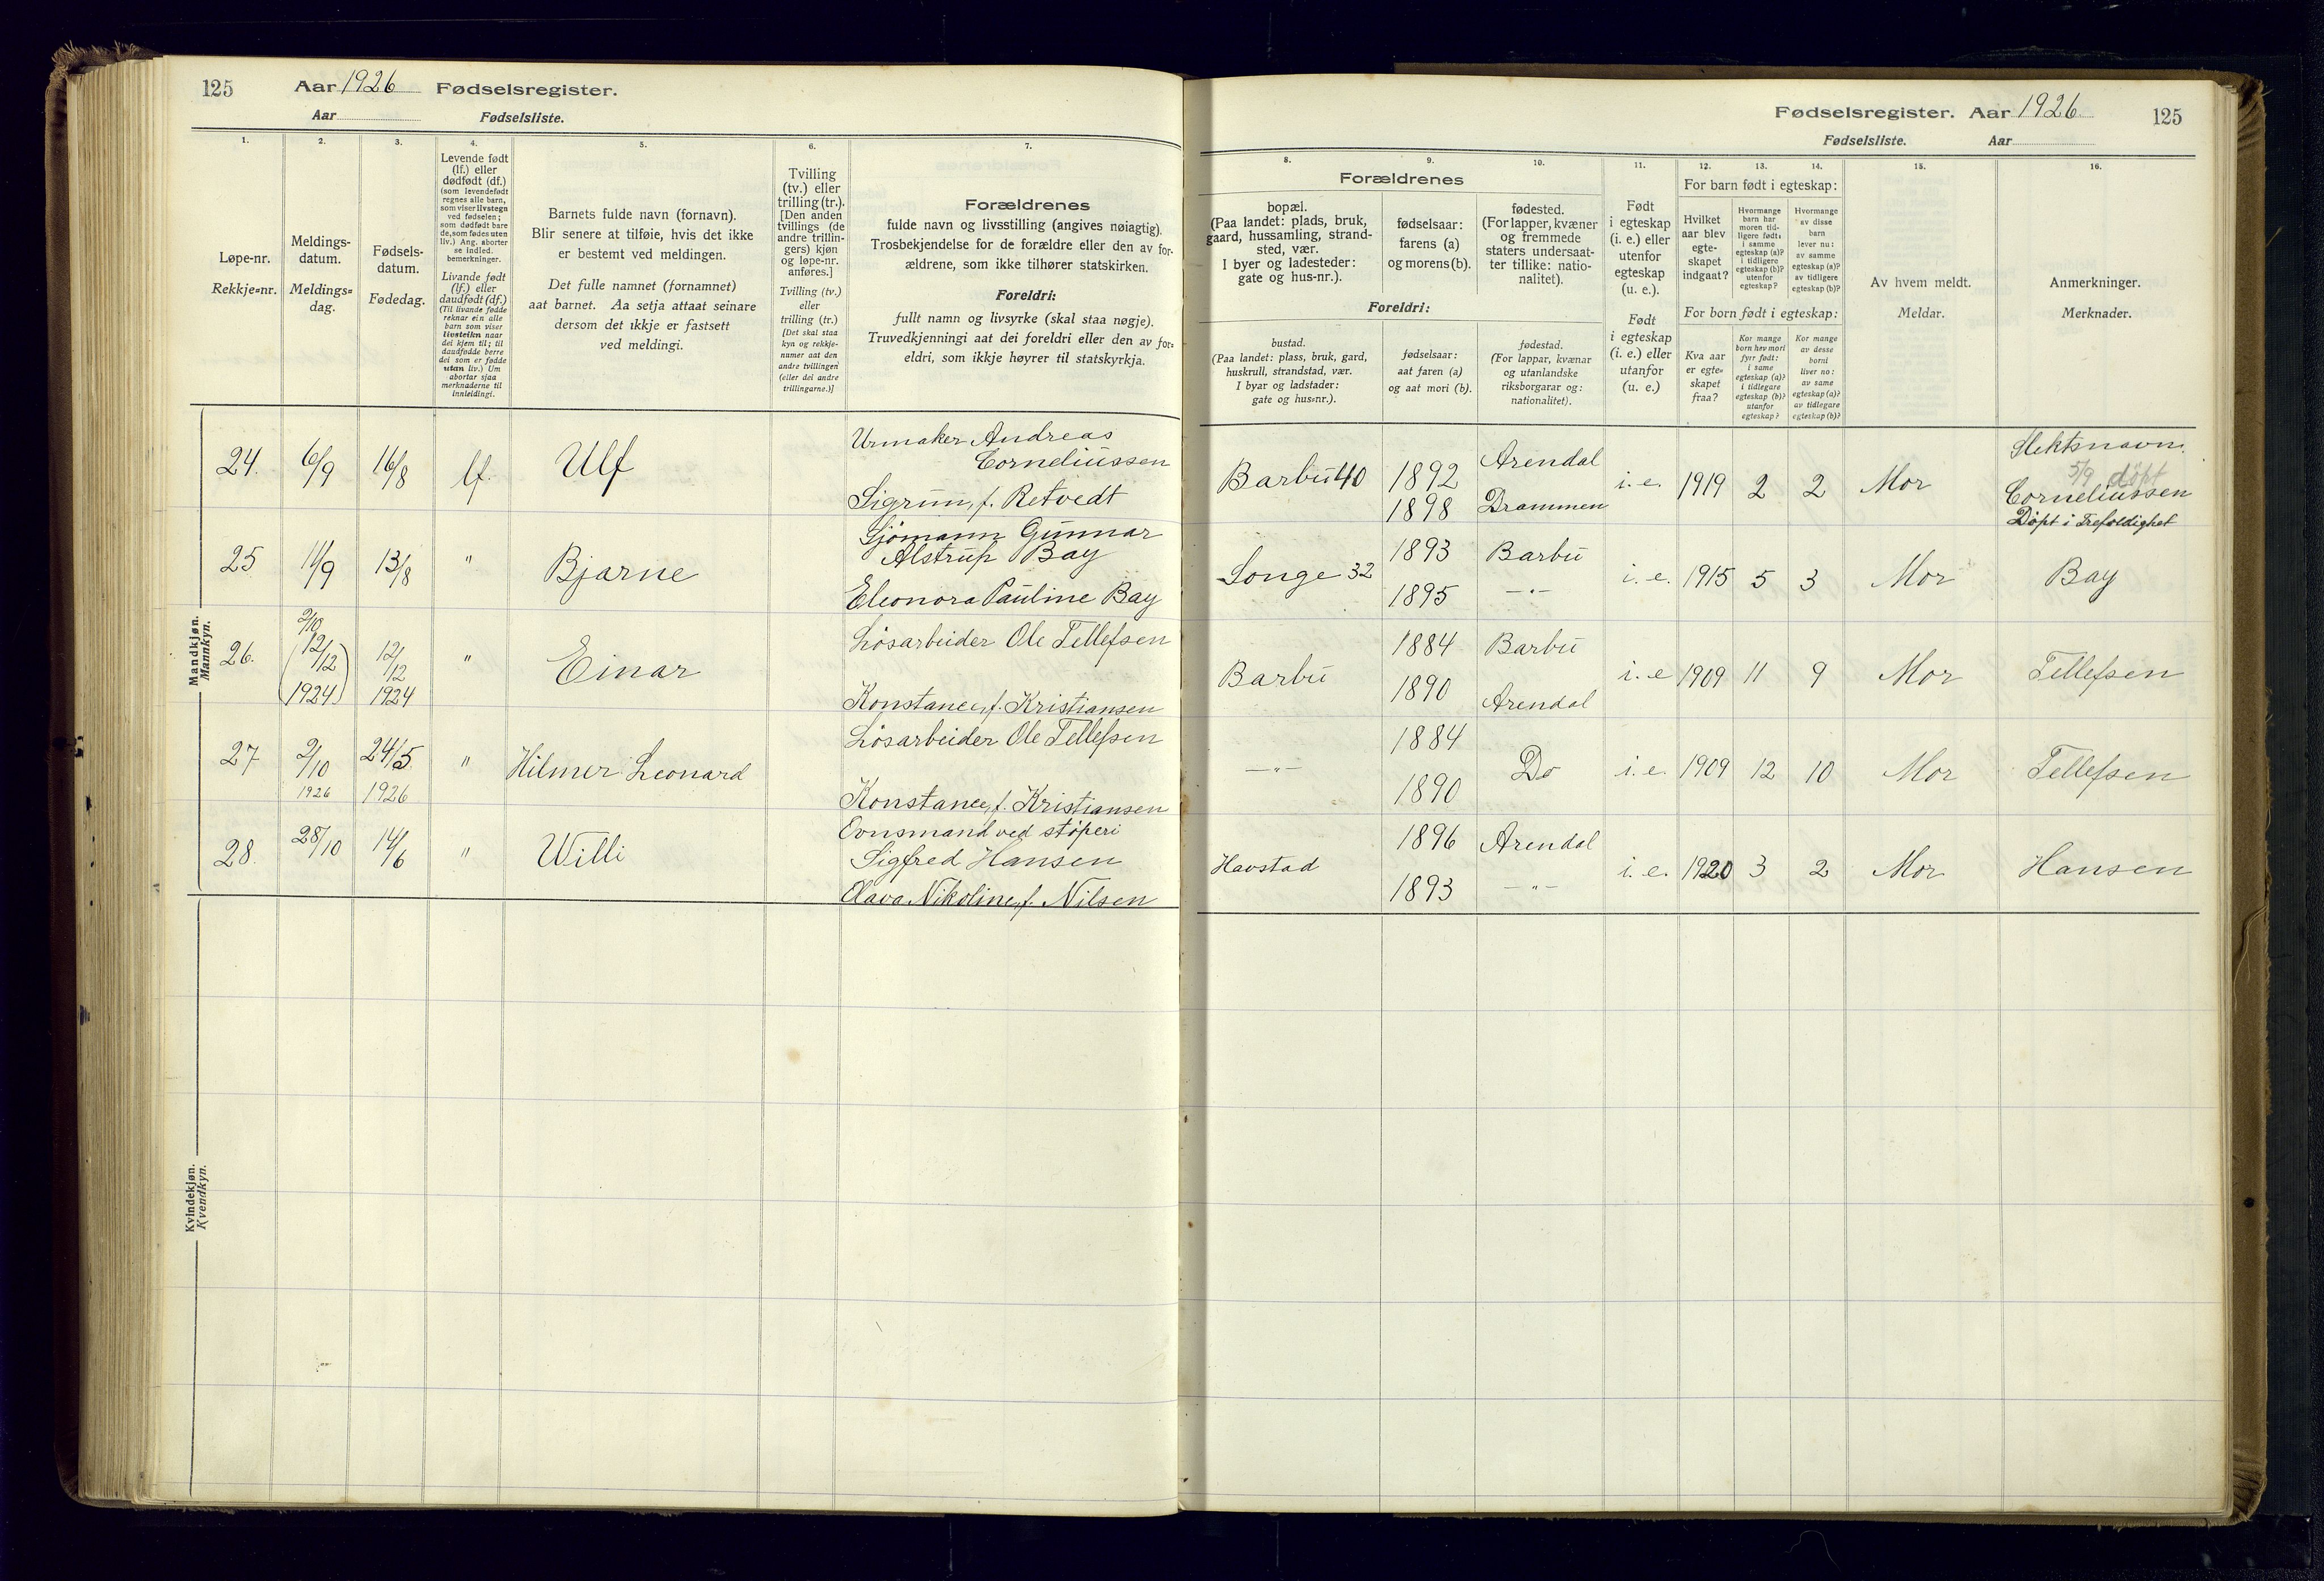 125 Aar 1926 Fødselsregister.
Aar Fødselsliste.
1. 2. 3. 4. 5. 6. 7.
Løpe-nr.
Rekkje=nr.
Meldings-
datum.
Meldings=
dag.
Fødsels-
datum.
Fødedag.
Levende født
(lf.) eller
dødfødt (df.)
(som levendefødt
regnes alle barn,
som viser livstegn
ved fødselen;
som dødfødt bare
de, som fødes uten
liv.) Ang. aborter
se indled.
bemerkninger.
Livande født
(lf.) eller
daudfødt (df.)
(Til livande fødde
reknar ein alle
barn som viser
livsteikn naar
dei kjem til; til
daudfødde berre
dei som er fødde
utan liv.) Um
abortar sjaa
merknaderne til
innleidingi.
Barnets fulde navn (fornavn).
Blir senere at tilføie, hvis det ikke
er bestemt ved meldingen.
Det fulle namnet (fornamnet)
aat barnet. Aa setja attaat seinare
dersom det ikkje er fastsett
ved meldingi.
Tvilling
(tv.) eller
trilling (tr.).
[Den anden
tvillings (de
andre trillin-
gers) kjøn
og løpe-nr.
anføres.]
Tvilling (tv.)
eller
trilling (tr.)
[Det skal staa
kyn og rekkje-
numer aat den
andre tvillingen
(eller dei andre
trillingarne.)]
Forældrenes
fulde navn og livsstilling (angives nøiagtig).
Trosbekjendelse for de forældre eller den av for-
ældrene, som ikke tilhører statskirken.
Foreldri:
fullt namn og livsyrke (skal staa nøgje).
Truvedkjenningi aat dei foreldri eller den av for=
eldri, som ikkje høyrer til statskyrkja.
Mandkjøn.
Mannkyn.
24. 6/9 16/8 lf. Ulf
Urmaker Andreas
Corneliussen
Sigrun, f. Retvedt
25 11/9 13/8 " Bjarne
Sjømann Gunnar
Alstrup Bay
Eleonora Pauline Bay
26. 2/10
(12/12
1924)
12/12
1924
" Einar
Løsarbeider Ole Tellefsen
Konstance, f. Kristiansen
27 2/10
1926
24/5
1926
" Hilmer Leonard
Løsarbeider Ole Tellefsen
Konstance, f. Kristiansen
28. 28/10 14/6 " Willi
Ovnsmand ved støperi
Sigfred Hansen
Olava Nikoline, f. Nilsen
Kvindekjøn.
Kvendkyn.
Fødselsregister. Aar 1926. 125
Fødselsliste. Aar
8. 9. 10. 11. 12. 13. 14. 15. 16.
Forældrenes
bopæl.
(Paa landet: plads, bruk,
gaard, hussamling, strand-
sted, vær.
I byer og ladesteder:
gate og hus-nr.).
fødselsaar:
farens (a)
og morens (b).
fødested.
(For lapper, kvæner
og fremmede
staters undersaat-
ter tillike: natio-
nalitet).
Foreldri:
bustad.
(Paa landet: plass, bruk, gard,
huskrull, strandstad, vær.
I byar og ladstader:
gate og hus=nr.).
fødselsaar:
aat faren (a)
og aat mori (b).
fødestad.
(For lappar, kvænar
og utanlandske
riksborgarar og:
nationalitet).
Født
i egteskap
(i. e.) eller
utenfor
egteskap
(u. e.).
Født
i egteskap
(i. e.) eller
utanfor
(u. e.)
For barn født i egteskap:
Hvilket
aar blev
egte-
skapet
indgaat?
Hvormange
barn har
moren tid-
ligere født:
i samme
egteskap (a)?
i tidligere
egteskap (b)?
utenfor
egteskap?
Hvormange
av disse
barn
lever nu:
av samme
egteskap (a)?
av tidligere
egteskap (b)?
For born født i egteskap:
Kva aar
er egte=
skapet
fraa?
Kor mange
born hev mori
fyrr født:
i same
egteskap (a)?
i tidlegare
egteskap (b)?
utanfor
egteskap?
Kor mange
av desse
borni
liver no:
av same
egteskap (a)?
av tidlegare
egteskap (b)?
Av hvem meldt.
Meldar.
Anmerkninger.
Merknader.
Barbu 40 1892 Arendal
1898 Drammen
i. e. 1919 2 2 Mor
Slektsnavn.
5/9 döpt
Corneliussen
Döpt i Trefoldighet
Songe 32 1893 Barbu
1895 —"—
i. e. 1915 5 3 Mor Bay
Barbu 1884 Barbu
1890 Arendal
i. e 1909 11 9 Mor Tellefsen
—"— 1884
1890
Do i. e. 1909 12 10 Mor Tellefsen
Havstad 1896 Arendal
1893 —"—
i. e. 1920 3 2 Mor Hansen